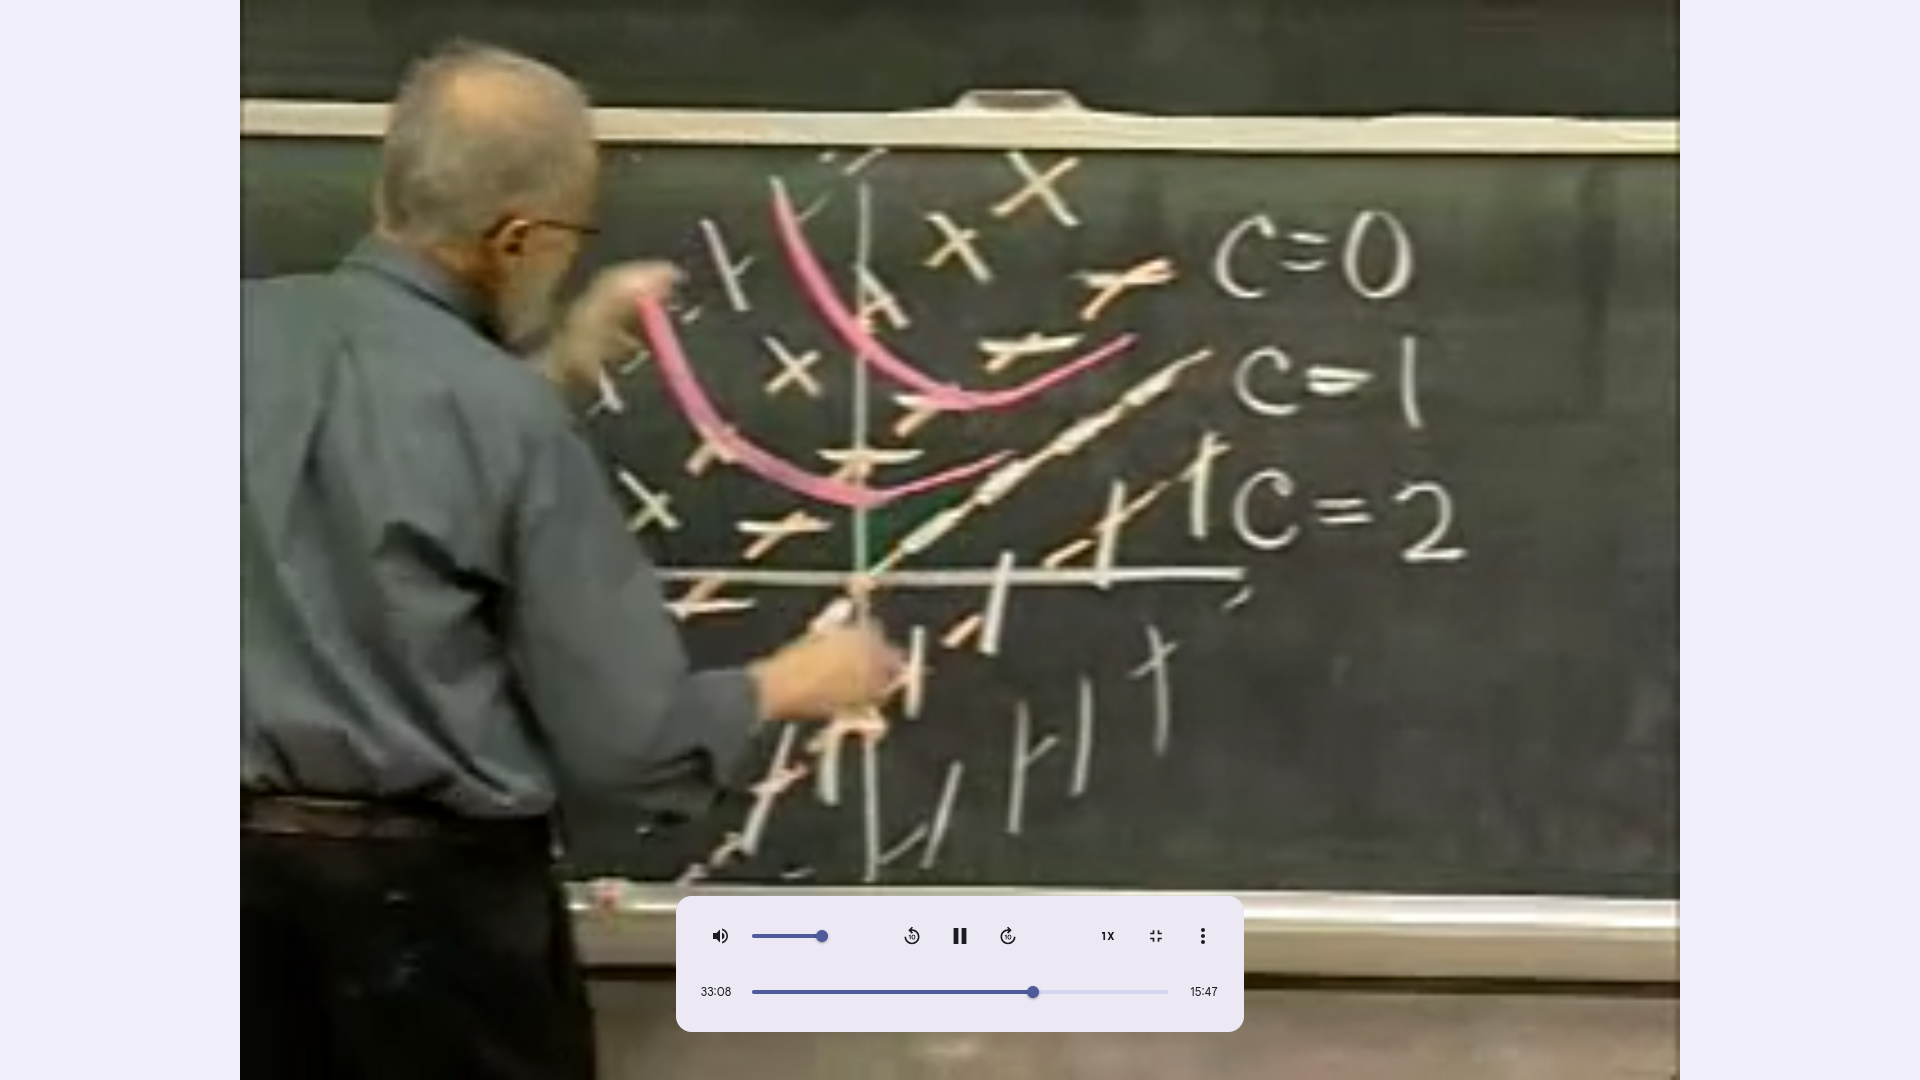 C=0
C=1
C=2
10
10
1X
33:08
15:47